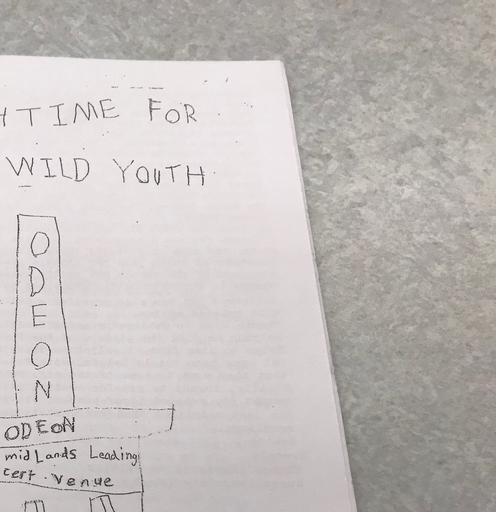 HTIME FOR
WILD YOUTH
ODEON
ODEON
midLands Leading
cert. venue